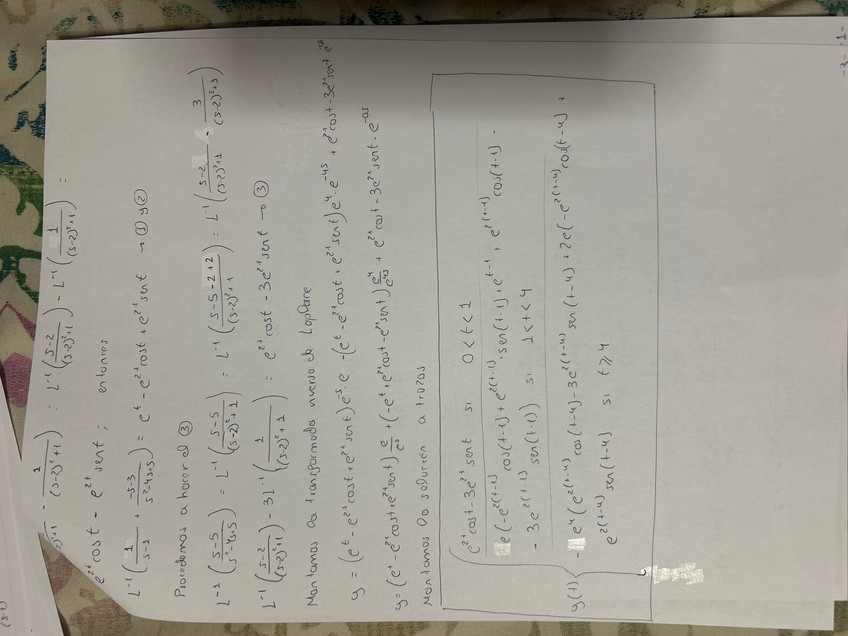 - 1/((s-2)²+1) = L⁻¹((s-2)/((s-2)²+1)) - L⁻¹(1/((s-2)²+1)) =
e^{2t} cost - e^{2t} sent ; entonces
L⁻¹(1/(s-1) + (-s-3)/(s²-4s+5)) = e^t - e^{2t} cost + e^{2t} sent → ① y ②
Procedemos a hacer el ③
L⁻¹((s-5)/(s²-4s+5)) = L⁻¹((s-5)/((s-2)²+1)) = L⁻¹((s-5-2+2)/((s-2)²+1)) = L⁻¹((s-2)/((s-2)²+1) - 3/((s-2)²+1))
L⁻¹((s-2)/((s-2)²+1)) - 3L⁻¹(1/((s-2)²+1)) = e^{2t} cost - 3e^{2t} sent → ③
Montamos la transformada inversa de Laplace
y = (e^t - e^{2t} cost + e^{2t} sent) e^{-s}·e - (e^t - e^{2t} cost + e^{2t} sent) e⁴·e^{-4s} + e^{2t} cost - 3e^{2t} sent e^{-0s}
y = (e^t - e^{2t} cost + e^{2t} sent) e/e^s + (-e^t + e^{2t} cost - e^{2t} sent) e⁴/e^{4s} + e^{2t} cost - 3e^{2t} sent · e^{-0s}
Montamos la solución a trozos
e^{2t} cost - 3e^{2t} sent si 0<t<1
e(-e^{2(t-1)} cos(t-1) + e^{2(t-1)} · sen(t-1) + e^{t-1} + e^{2(t-1)} cos(t-1) -
- 3e^{2(t-1)} sen(t-1)) si 1<t<4
y(t) - e⁴(e^{2(t-4)} cos(t-4) - 3e^{2(t-4)} sen(t-4) + 2e(-e^{2(t-4)} cos(t-4) +
e^{2(t-4)} sen(t-4) si t≥4